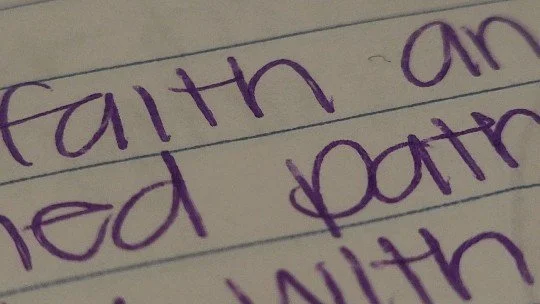 faith an
ed path
with